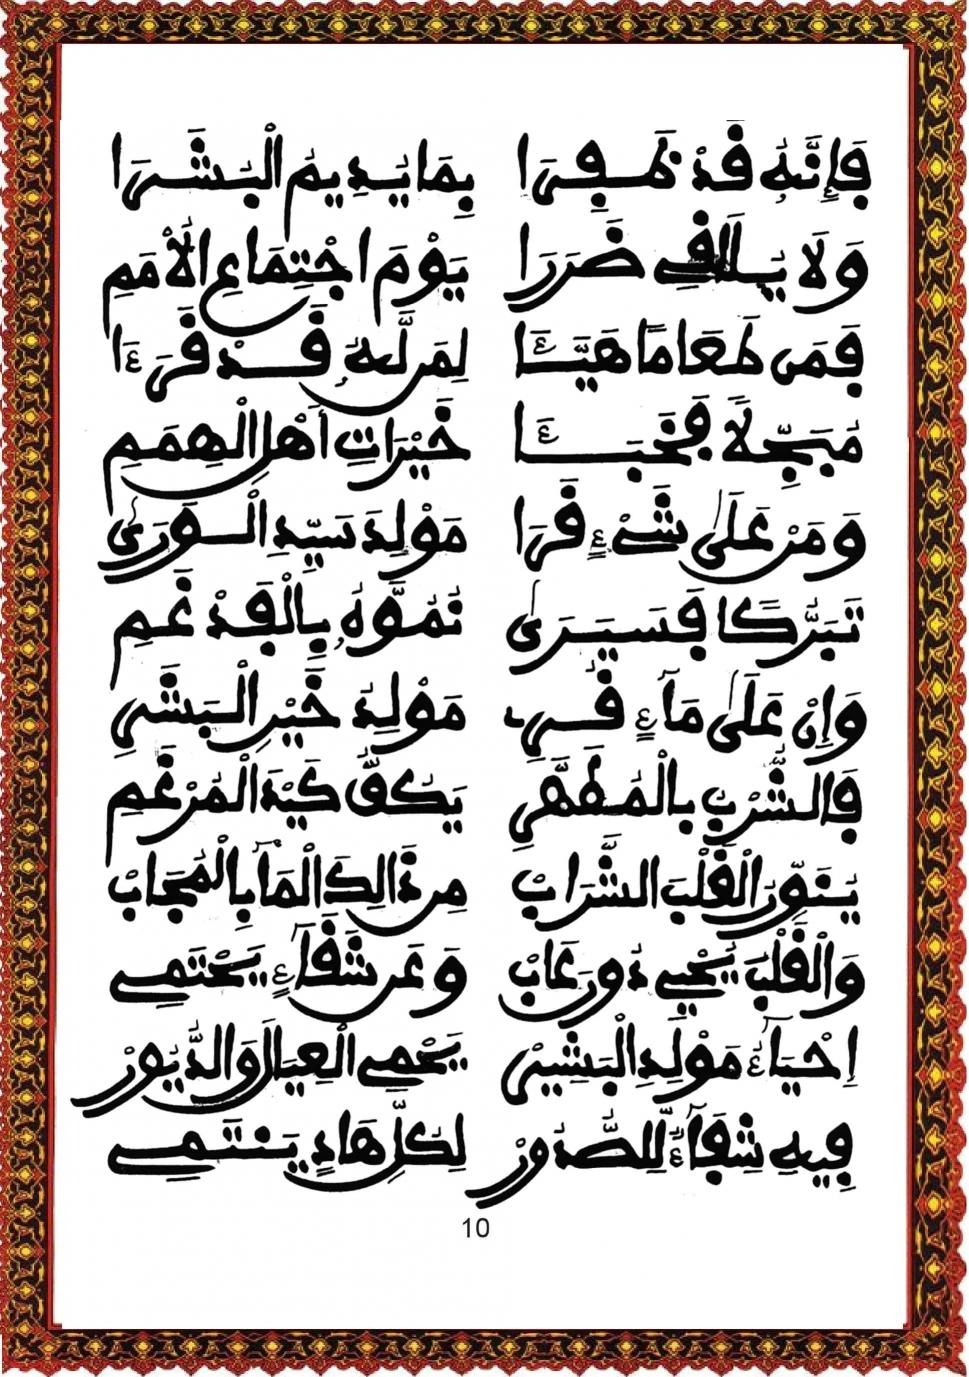 فَإِنَّهُ قَدْ ظَفِرَا بِمَا يُدِيمُ الْبَشَرَا
وَلَا يُلَاقِي ضَرَرَا يَوْمَ اجْتِمَاعِ الْأُمَمِ
فَمَن طَعَامًا هَيَّئَا لِمَن لَهُ قَدْ قَرَءَا
مُبَجِّلًا فَخَبَّئَا خَيْرَاتِ أَهْلِ الْهِمَمِ
وَمَنْ عَلَى شَيْءٍ قَرَا مَوْلِدَ سَيِّدِ الْوَرَى
تَبَرُّكًا فَسَيَرَى نُمُوَّهُ بِالْقَدْ غَمِ
وَإِنْ عَلَى مَاءٍ قُرِي مَوْلِدُ خَيْرِ الْبَشَرِ
فَالشُّرْبُ بِالْمُطَهَّرِ يَكُفُّ كَيْدَ الْمُرْغَمِ
يُنَوِّرُ الْقَلْبَ الشَّرَابْ مِن ذَالِكَ الْمَا بِالْمُجَابْ
وَالْقَلْبُ يَحْيَى دُونَ عَابْ وَعَن شَقَاءٍ يَحْتَمِي
إِحْيَاءُ مَوْلِدِ الْبَشِيرْ يَحْمِي الْعِيَالَ وَالدُّيُورْ
فِيهِ شِفَاءٌ لِلصُّدُورْ لِكُلِّ هَادٍ يَنتَمِي
10